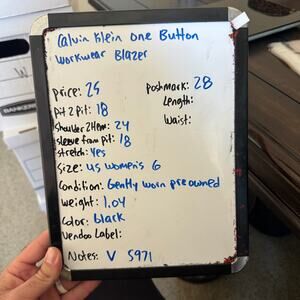 Calvin Klein One Button
Workwear Blazer
price: 25
poshmark: 28
pit 2 pit: 18
Length:
shoulder 2 Hem: 24
Waist:
sleeve from pit: 18
stretch: yes
Size: US women's 6
Condition: Gently worn pre owned
Weight: 1.04
Color: black
Vendoo Label:
Notes: V 5971